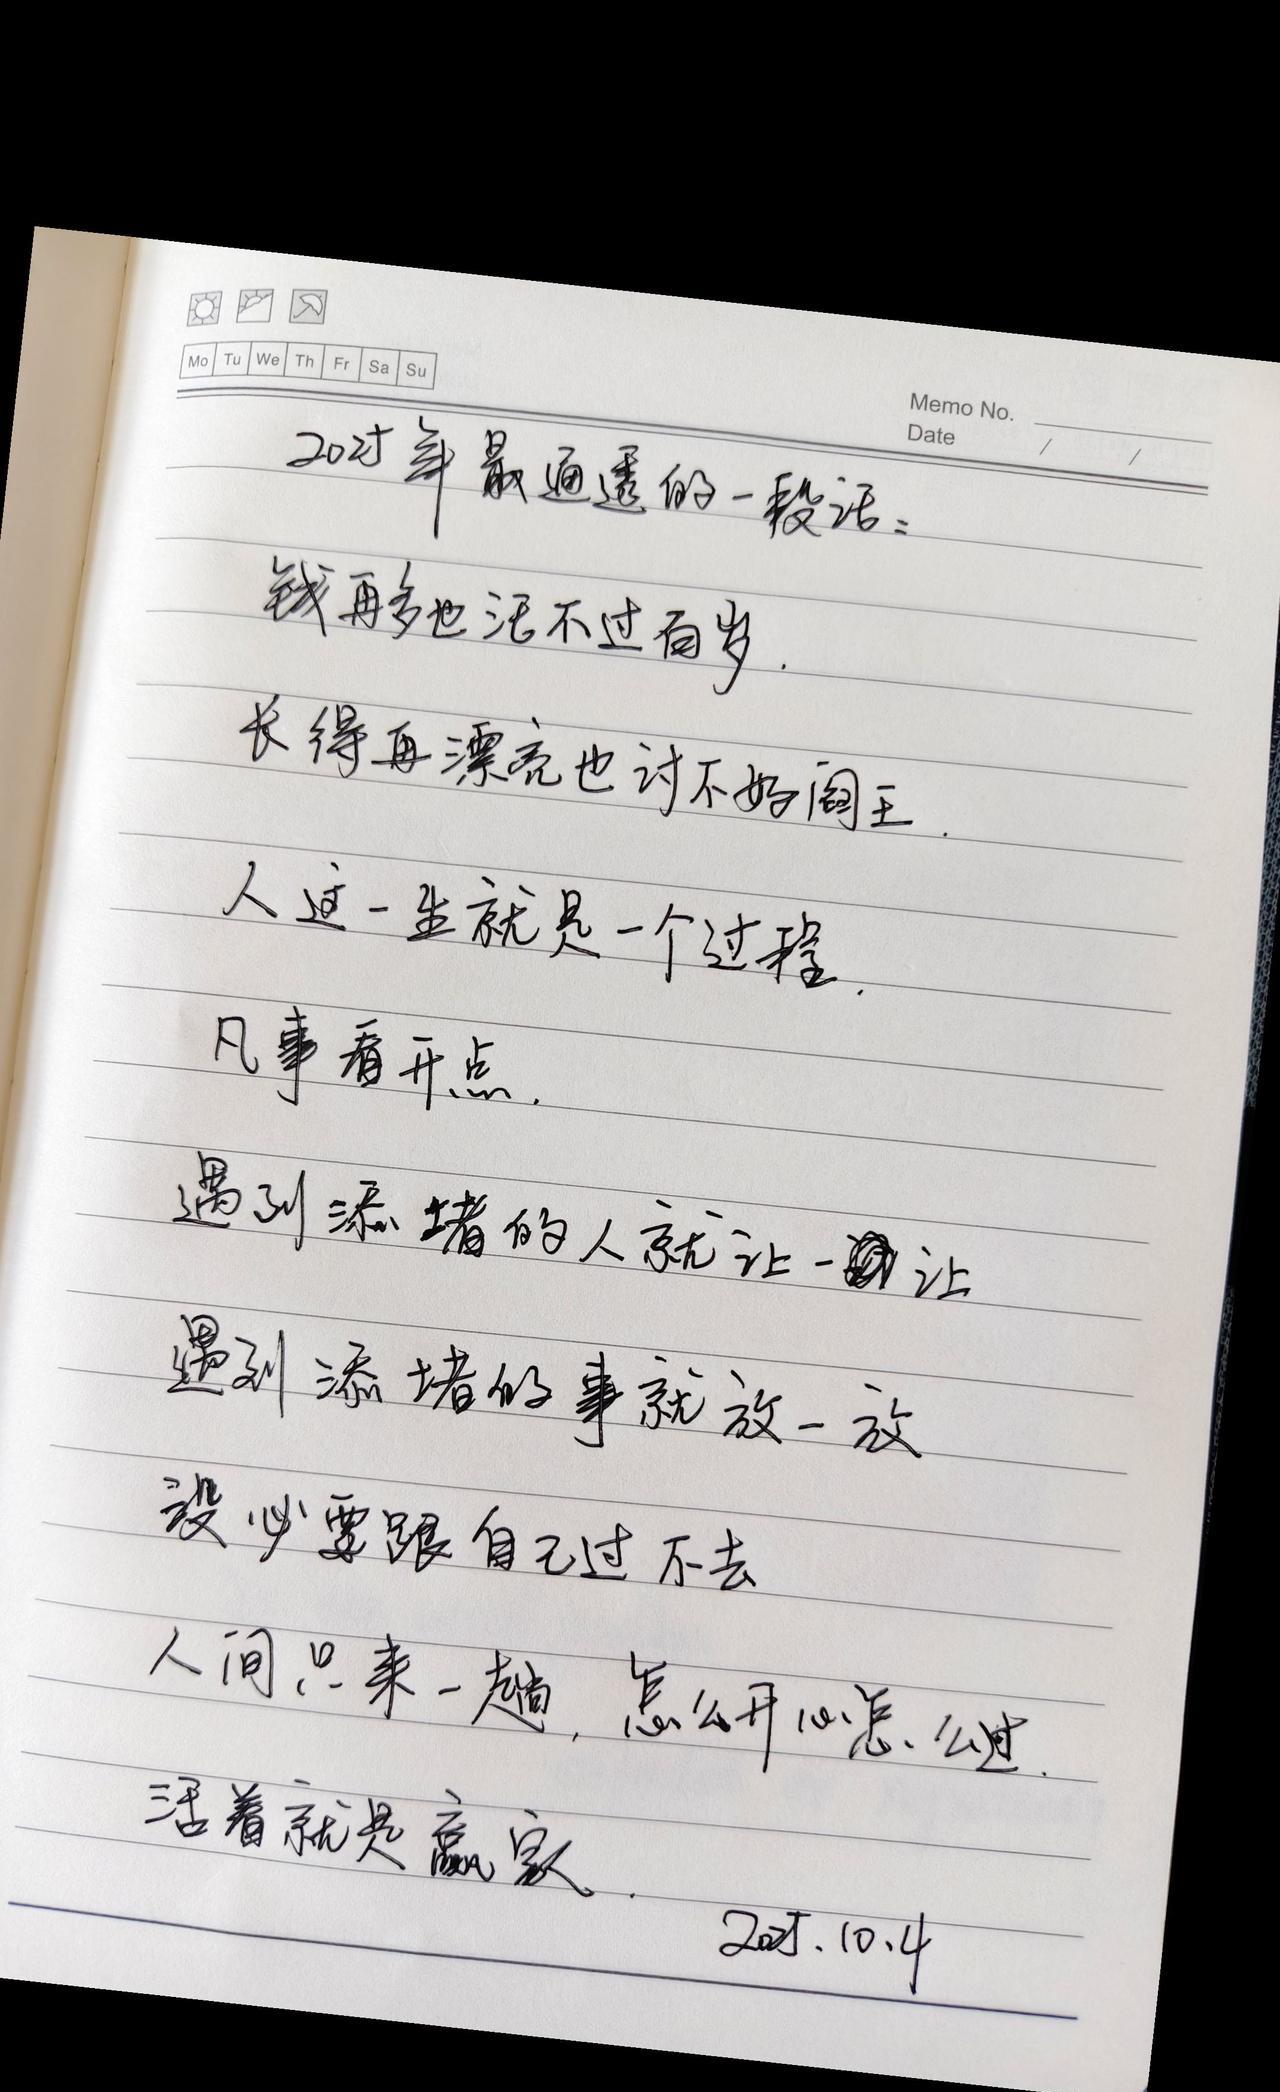 Mo Tu We Th Fr Sa Su
Memo No.
Date / /
2025年最通透的一段话:
钱再多也活不过百岁.
长得再漂亮也讨不好阎王.
人这一生就是一个过程.
凡事看开点.
遇到添堵的人就让一让
遇到添堵的事就放一放
没必要跟自己过不去
人间只来一趟,怎么开心怎么过.
活着就是赢家.
2025.10.4